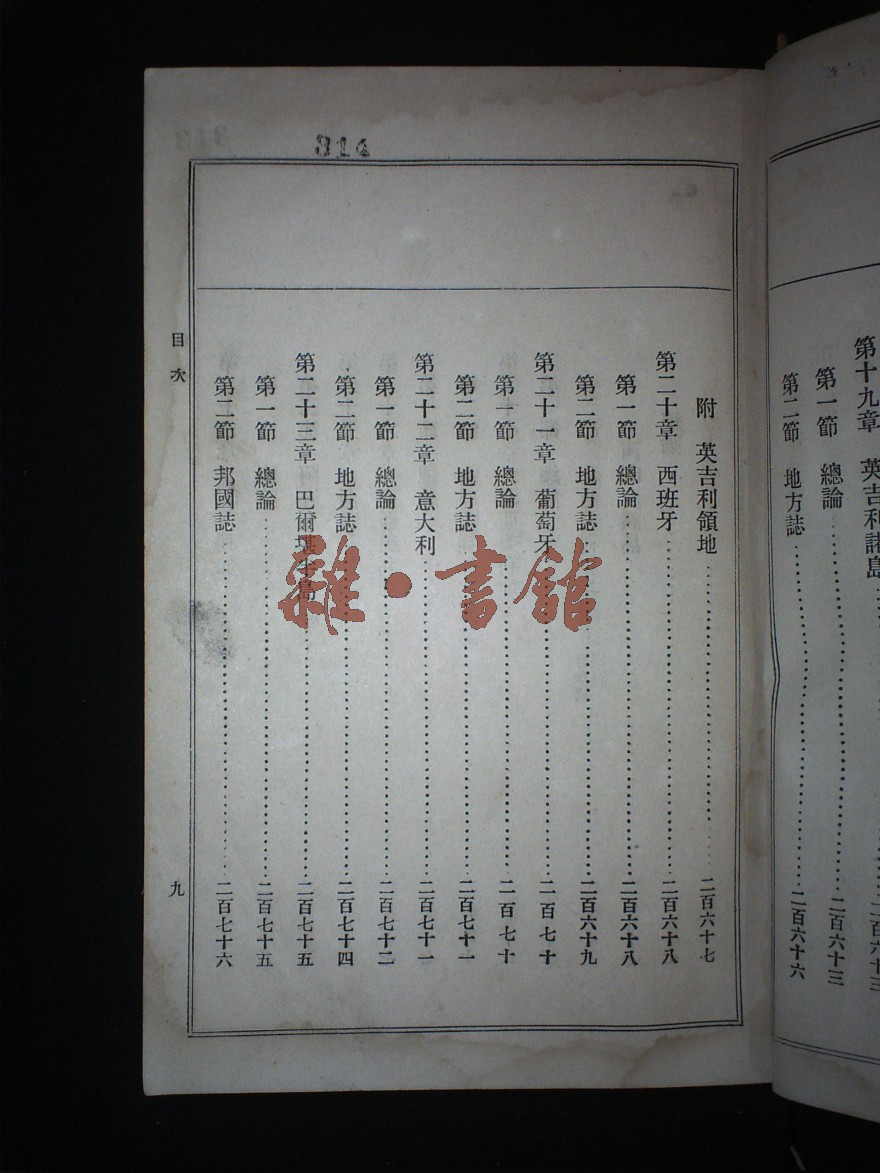 第十九章　英吉利諸島……二百六十三
第一節　總論……二百六十三
第二節　地方誌……二百六十六
314
附　英吉利領地……二百六十七
第二十章　西班牙……二百六十八
第一節　總論……二百六十八
第二節　地方誌……二百六十九
第二十一章　葡萄牙……二百七十
第一節　總論……二百七十
第二節　地方誌……二百七十一
第二十二章　意大利……二百七十一
第一節　總論……二百七十二
第二節　地方誌……二百七十四
第二十三章　巴爾堪半島……二百七十五
第一節　總論……二百七十五
第二節　邦國誌……二百七十六
目次
九
雜·書館